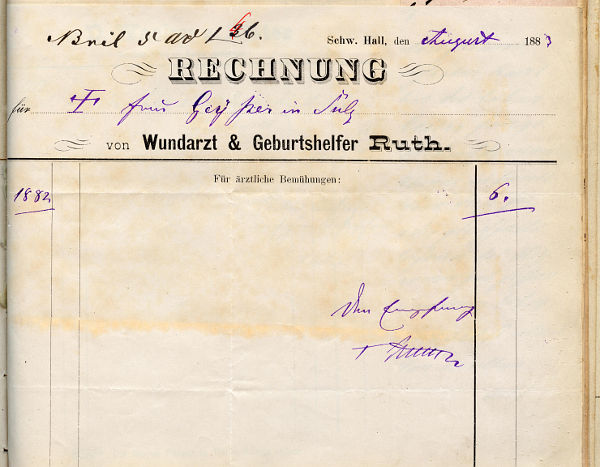 Schw. Hall, den August 1883
RECHNUNG
für Frau in Sulz
von Wundarzt & Geburtshelfer Ruth.
Für ärztliche Bemühungen:
1882 6.
Den Empfang